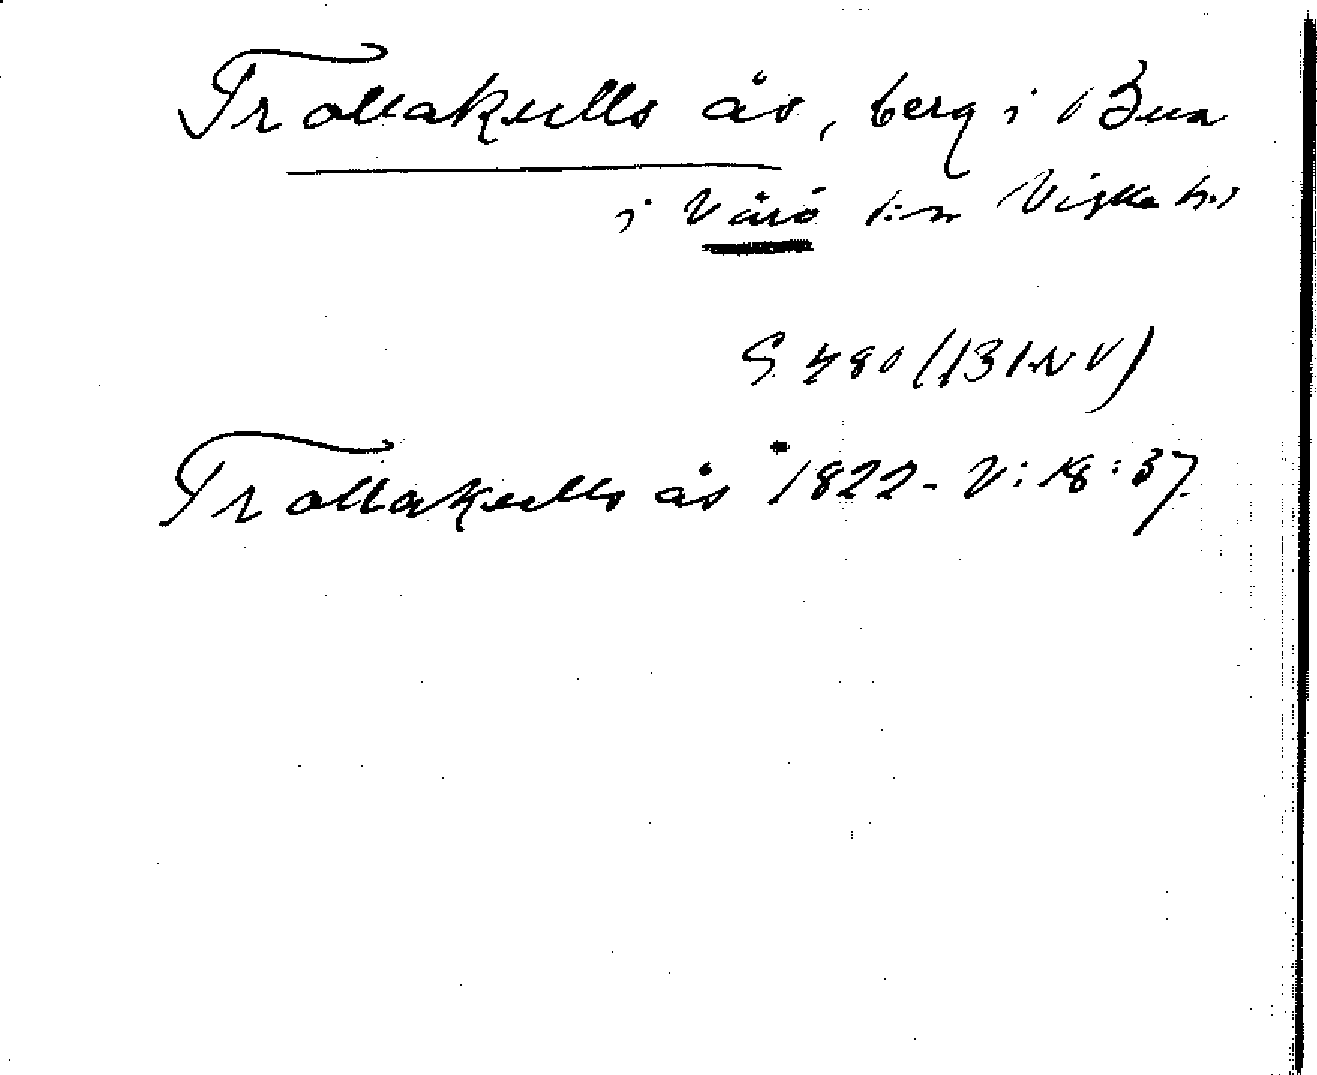 Trollakulls ås, berg i Bua
i Värö s:n Viske hd
S 480 (131NV)
Trollakulls ås 1822 - V: 18: 37.